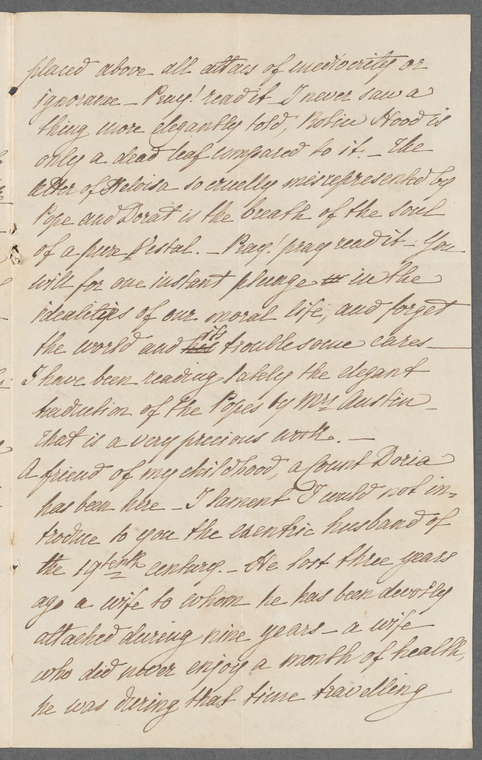 placed above all attacs of mediocrity or
ignorance – Pray! read it – I never saw a
thing more elegantly told, Robin Hood is
only a dead leaf compared to it. – The
letter of Heloisa so cruelly misrepresented by
Pope and Dorat is the breath of the soul
of a pure Vestal. – Pray! pray read it – You
will for one instant plunge in the
idealities of our moral life, and forget
the world and its troublesome cares –
I have been reading lately the elegant
traduction of the Popes by Mrs Austin –
That is a very precious work. –
A friend of my childhood, a Count Doria
has been here – I lament I could not in=
troduce to you the exentric husband of
the 19tenth century. – He lost three years
ago a wife to whom he has been devotly
attached during nine years – a wife
who did never enjoy a month of health,
he was during that time travelling